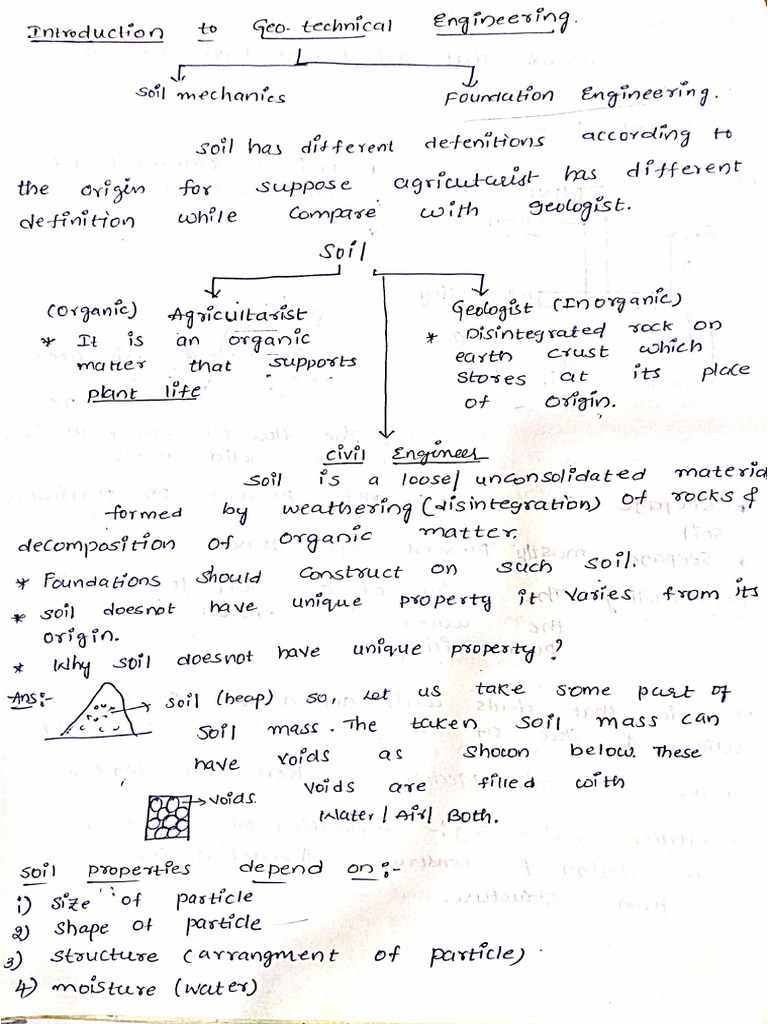 Introduction to Geo-technical Engineering.
Soil mechanics Foundation Engineering.
Soil has different defenitions according to
the origin for suppose agricutarist has different
definition while compare with geologist.
Soil
(Organic) Agricultarist
* It is an organic
matter that supports
plant life
Geologist (Inorganic)
* Disintegrated rock on
earth crust which
stores at its place
of origin.
Civil Engineer
Soil is a loose/unconsolidated material
formed by weathering (disintegration) of rocks &
decomposition of organic matter.
* Foundations should construct on such soil.
* Soil doesnot have unique property it varies from its
origin.
* Why soil doesnot have unique property?
Ans:- soil (heap) so, Let us take some part of
soil mass. The taken soil mass can
have voids as shown below. These
voids are filled with
Water/Air/Both.
voids.
Soil properties depend on:-
1) Size of particle
2) Shape of particle
3) Structure (arrangment of particle)
4) moisture (water)